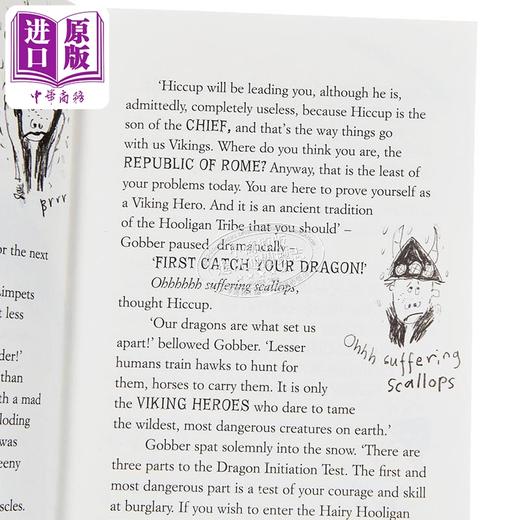 进口
原版
中华商务
Brrr
or the next
impets
t less
der!'
than
th a mad
loding
was
eeny
scles.
'Hiccup will be leading you, although he is,
admittedly, completely useless, because Hiccup is the
son of the CHIEF, and that's the way things go
with us Vikings. Where do you think you are, the
REPUBLIC OF ROME? Anyway, that is the least of
your problems today. You are here to prove yourself as
a Viking Hero. And it is an ancient tradition
of the Hooligan Tribe that you should' –
Gobber paused, dramatically –
'FIRST CATCH YOUR DRAGON!'
Ohhhhhh suffering scallops,
thought Hiccup.
'Our dragons are what set us
apart!' bellowed Gobber. 'Lesser
humans train hawks to hunt for
them, horses to carry them. It is only
the VIKING HEROES who dare to tame
the wildest, most dangerous creatures on earth.'
Gobber spat solemnly into the snow. 'There are
three parts to the Dragon Initiation Test. The first and
most dangerous part is a test of your courage and skill
at burglary. If you wish to enter the Hairy Hooligan
Ohhh suffering
scallops